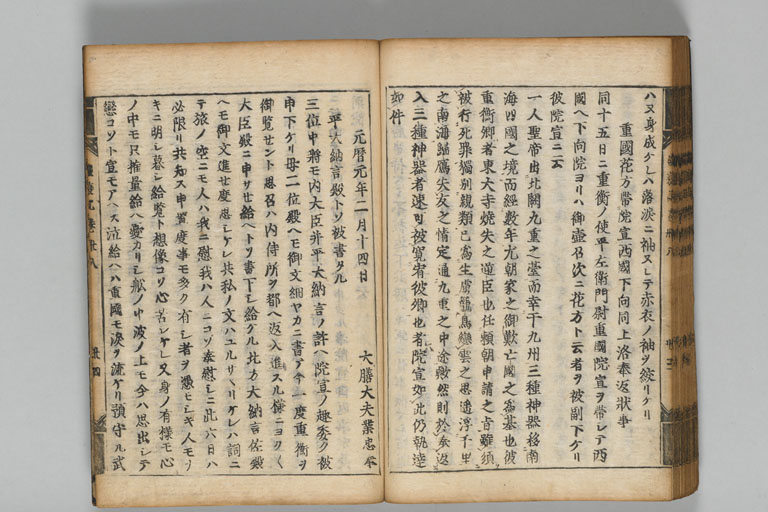 ハ又身成ケレハ落涙ニ袖又レテ赤衣ノ袖ヲ絞リケリ
重國花方帶院宣西國下向同上洛奉返狀事
同十五日ニ重衡ノ使平左衛門尉重國院宣ヲ帶レテ西
國ヘ下向院ヨリハ御壺召次ニ花方ト云者ヲ被副下ケリ
彼院宣ニ云
一人聖帝出北闕九重之臺而幸于九州三種神器移南
海四國之境而經數年尤朝家之御歎亡國之爲基也彼
重衡卿者東大寺燒失之逆臣也任頼朝申請之旨雖須
被行死罪獨別親類已爲生虜籠鳥戀雲之思遙浮千里
之南海歸鴈失友之情定通九重之中途歟然則於奉返
入三種神器者速可被寛宥彼卿也者院宣如此仍執達
如件
元暦元年二月十四日
大膳大夫業忠奉
平大納言殿トソ被書タル
三位中將モ内大臣并平大納言ノ許ヘ院宣ノ趣委ク被
申下ケリ母二位殿ヘモ御文細ヤカニ書ア今一度重衡ヲ
御覽セント思召ハ内侍所ヲ都ヘ返入進スル樣ニヨクく
大臣殿ニ申サセ給ヘトソ書下レ給ケル北方大納言佐殿
ヘモ御文進セ度思レケレ共私ノ文ハユルサヽリケレハ詞ニ
テ旅ノ空ニモ人ハ我ニ慰我ハ人ニコソ奉慰レニ此六日ハ
必限リ共知ス申置度事モ多ク有レ者ヲ憑モレキ人モナ
キニ明レ暮レ給覽ト想像コソ心苦レケレ又身ノ有樣モ心
ノ中モ只推量給ヘ憂カリレ舩ノ中波ノ上モ今ハ思出レテ
戀コソト宣モアヘス泣給ヘハ重國モ涙ヲ流ケリ預守ル武
卷廿八
廿四